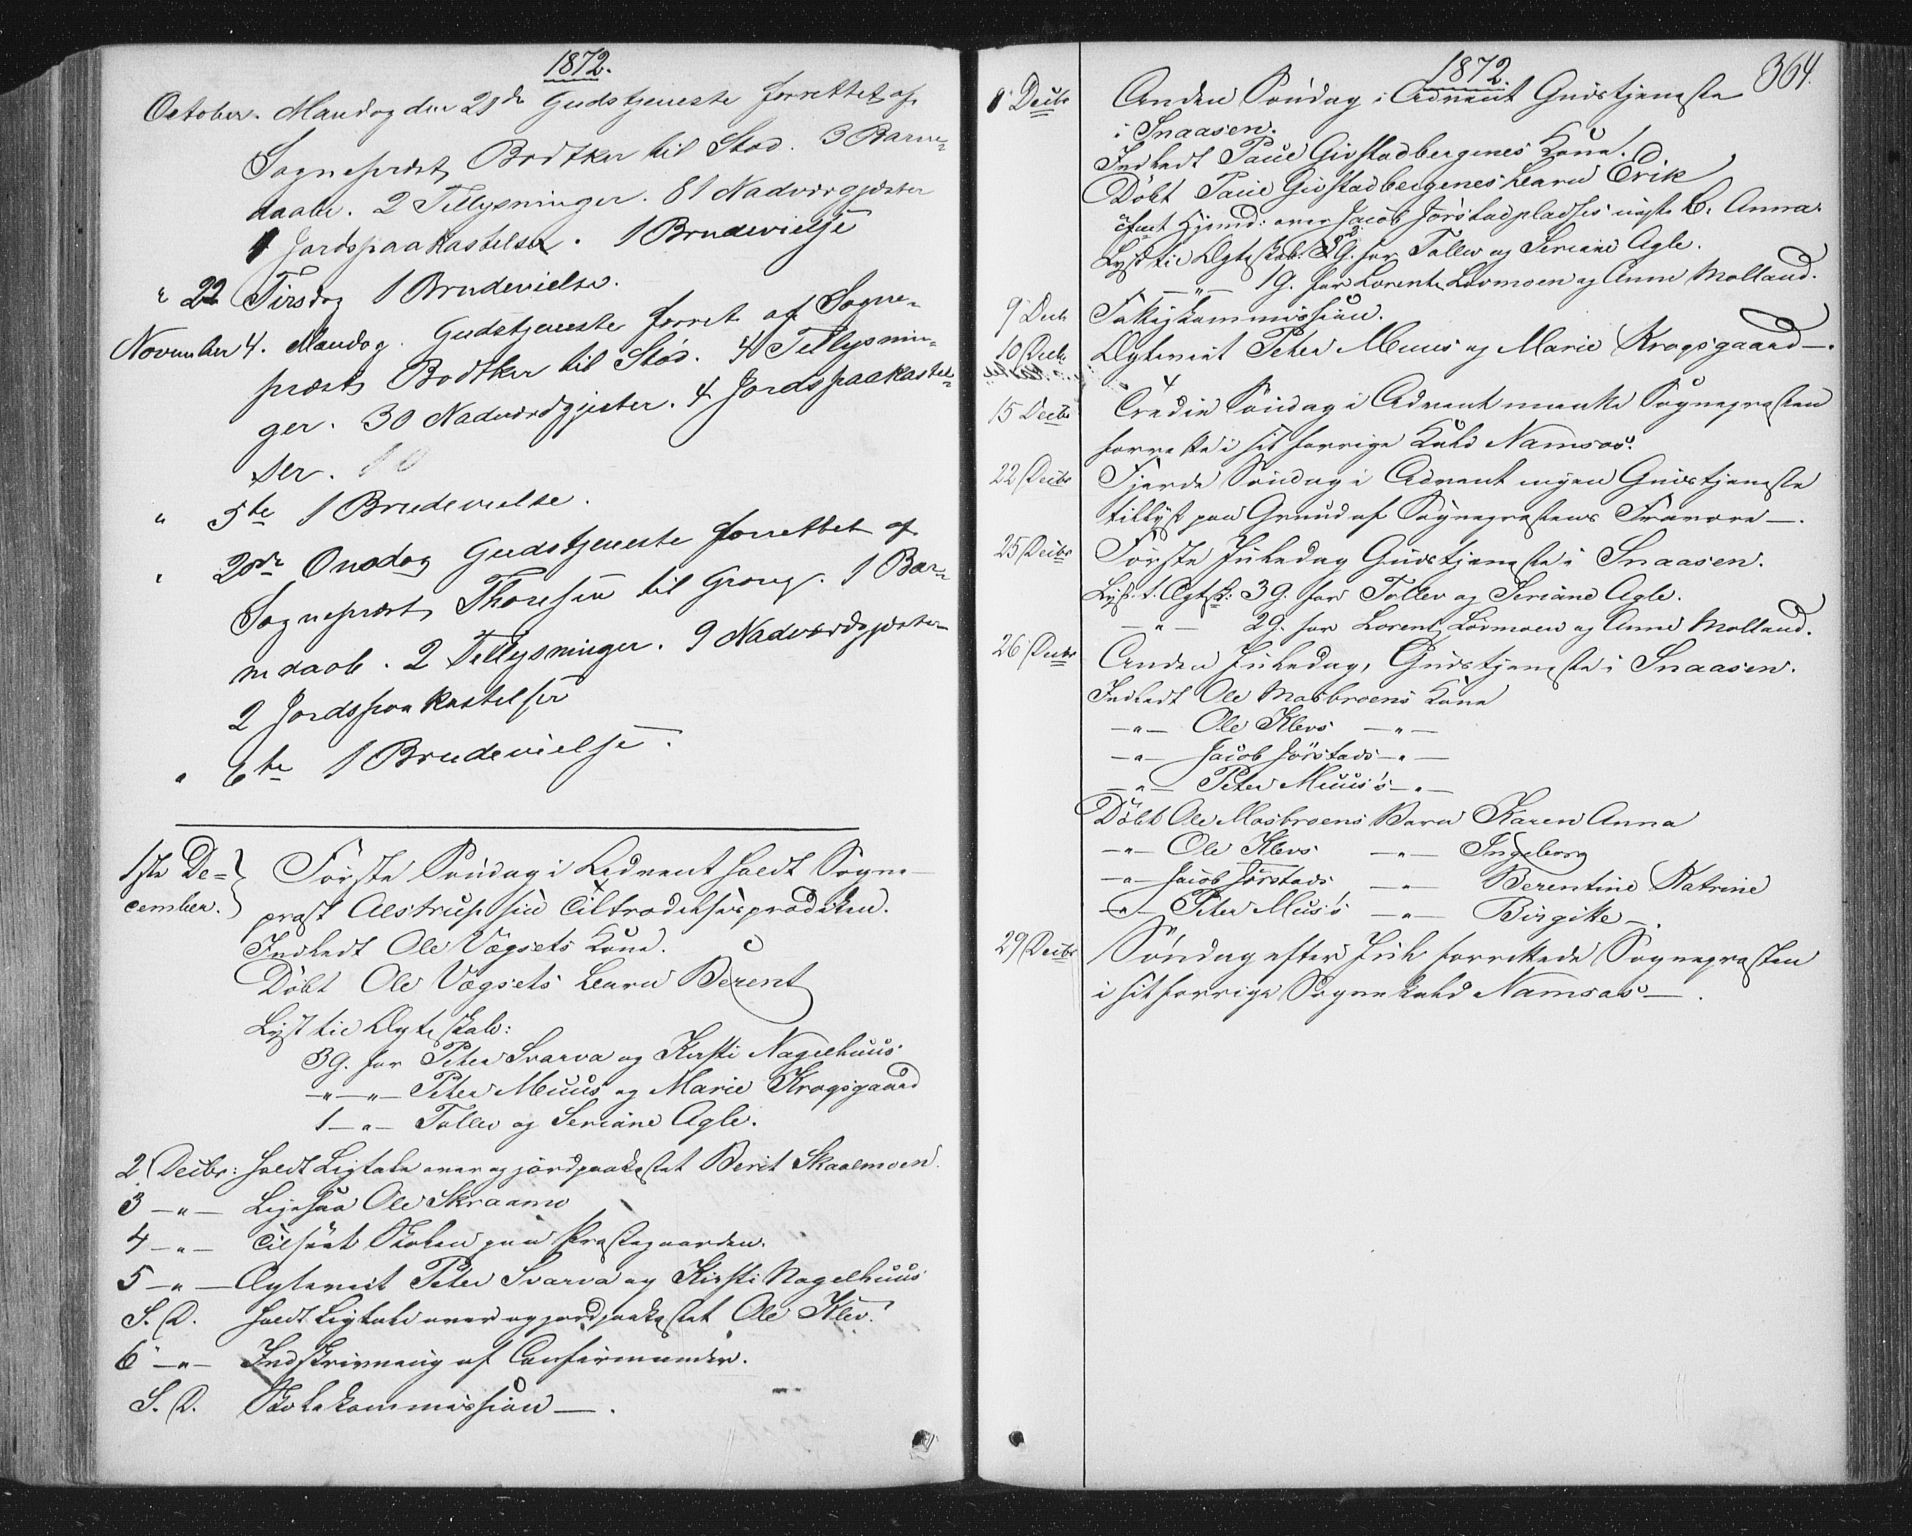 1872.
October. Mandag den 21de Gudstjeneste forrettet af
Sogneprest Bødtker til Stod. 3 Barne-
daabe. 2 Tillysninger. 81 Nadvergjæster
1 Jordspaakastelse. 1 Brudevielse
" 22 Tirsdag 1 Brudevielse.
November 4. Mandag. Gudstjeneste forret. af Sogne-
prest Bødtker til Stod. 4 Tillysnin-
ger. 30 Nadverdgjester. 4 Jordspaakastel-
ser.
" 5te 1 Brudevielse.
" 20de Onsdag Gudstjeneste forrettet af
Sogneprest Thoresen til Grong. 1 Bar-
nedaab. 2 Tillysninger. 9 Nadverdgjester
2 Jordspaakastelser
" 6te 1 Brudevielse.
1ste De-
cember.
Første Søndag i Advent holdt Sogne-
præst Alstrup sin Tiltrædelsesprædiken.
Indledt Ole Vægsets Kone.
Døbt Ole Vægsets Barn Berent
Lyst til Ægteskab:
3 G. for Peter Svarva og Kirsti Nagelhuus
-"- -"- Peter Muus og Marie Krogsgaard
1 -"- Tollev og Seriane Agle.
2 Decbr: holdt Ligtale over og jordpaakastet Berit Skaalmoen.
3 -"- Ligesaa Ole Skraamo
4 -"- Tilsaat Skolen paa Præstegaarden.
5 -"- Ægteviet Peter Svarva og Kirsti Nagelhuus
S. D. holdt Ligtale over og jordpaakastet Ole Klev.
6 -"- Indskrivning af Confirmander.
S. D. Skolekommission.
1872.
364.
8 Decbr Anden Søndag i Advent Gudstjeneste
i Snaasen.
Indledt Paul Givstadbergenes Kone.
Døbt Paul Givstadbergenes Barn Erik
Lyst til Ægteskab: 2 G. for Tollev og Seriane Agle.
-"- 1 G. for Lorents Løvmoen og Anne Molland.
9 Decb Fattigkommission.
10 Decb. Ægteviet Peter Muus og Marie Krogsgaard.
15 Decbr Tredie Søndag i Advent maatte Sognepræsten
forrette i sit forrige Kald Namsos.
22 Decbr Fjerde Søndag i Advent ingen Gudstjeneste
tillyst paa Grund af Sognepræstens Fravære.
25 Decbr Første Juledag Gudstjeneste i Snaasen.
Lyst t. Ægtsk: 3 G. for Tollev og Seriane Agle.
-"- 2 G. for Lorents Løvmoen og Anne Molland.
26 Decbr Anden Juledag, Gudstjeneste i Snaasen.
Indledt Ole Mosbroens Kone
-"- Ole Klevs -"-
-"- Jacob Jørstads -"-
-"- Peter Muus's -"-
Døbt Ole Mosbroens Barn Karen Anna
-"- Ole Klevs -"- Ingeborg
-"- Jacob Jørstads -"- Berentine Katrine
-"- Peter Mus's -"- Birgitte.
29 Decbr Søndag efter Jul forrettede Sognepræsten
i sit forrige Sognekald Namsos.